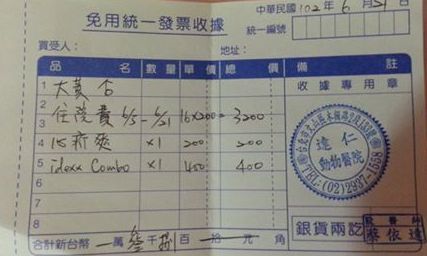 免用統一發票收據
中華民國102年6月21日
統一編號
買受人：
地址：
品名 數量 單價 總價 備註
1 大黃
2 收據專用章
3 住院費 6/5-6/21 16×200= 3200
4 ×1 200 200
5 idexx Combo ×1 400 400
6
7
8
達仁
動物醫院
TEL:(02)2937-1568
銀貨兩訖
獸醫師
蔡依達
合計新台幣 萬 參千捌百 拾 元 角